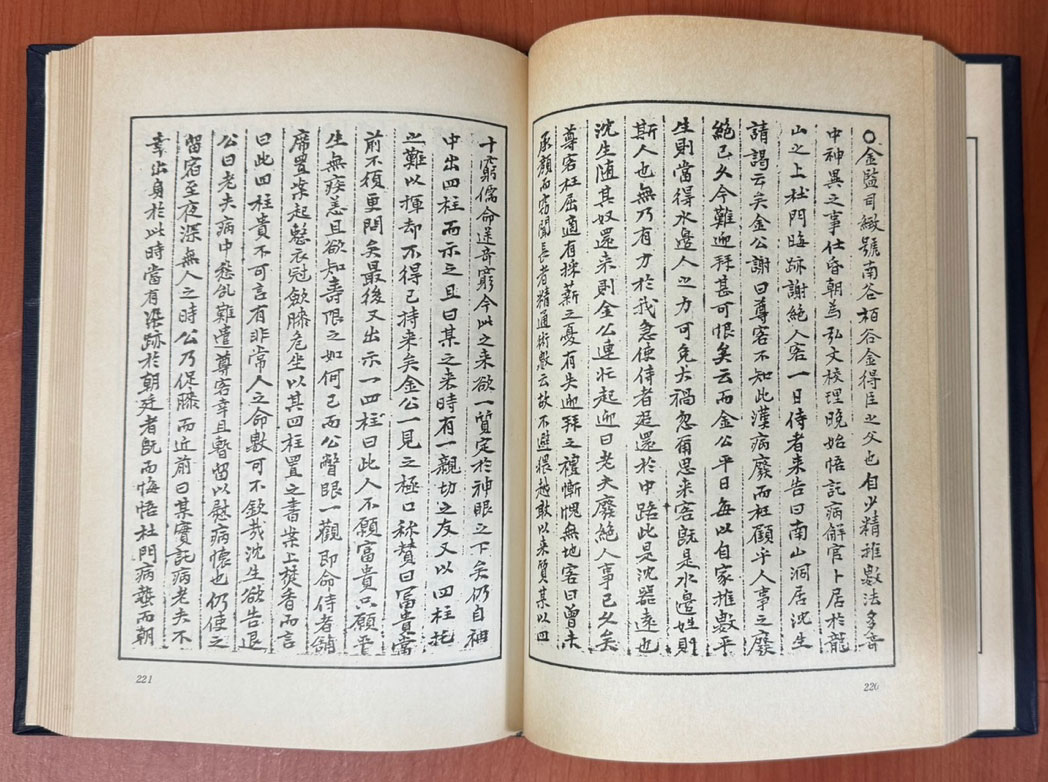 ○金監司緻號南谷栢谷金得臣之父也自少精推數法多奇
中神異之事仕昏朝爲弘文校理晩始悟託病解官卜居於龍
山之上杜門晦跡謝絶人客一日侍者来告曰南山洞居沈生
請謁云矣金公謝曰尊客不知此漢病廢而枉顧乎人事之廢
絶已久今難迎拜甚可恨矣云而金公平日每以自家推數平
生則當得水邊人之力可免大禍忽爾思来客旣是水邊姓則
斯人也無乃有力於我急使侍者追還於中路此是沈器遠也
沈生随其奴還来則金公連忙起迎曰老夫廢絶人事已久矣
尊客枉屈適有採薪之憂有失迎拜之禮慚愧無地客曰曾未
承顔而窃聞長者精通術數云故不避猥越敢以来質某以四
十窮儒命途奇窮今此之来欲一質定於神眼之下矣仍自袖
中出四柱而示之且曰某之来時有一親切之友又以四柱托
之難以揮却不得已持来矣金公一見之極口称贊曰冨貴當
前不須更問矣最後又出示一四柱曰此人不願富貴只願平
生無疾恙且欲知壽限之如何已而公瞥眼一觀即命侍者鋪
席置案起整衣冠斂膝危坐以其四柱置之書案上焚香而言
曰此四柱貴不可言有非常人之命數可不欽哉沈生欲告退
公曰老夫病中愁乱難遣尊客幸且暫留以慰病懷也仍使之
留宿至夜深無人之時公乃促膝而近前曰某實託病老夫不
幸出身於此時當有染跡於朝廷者旣而悔悟杜門病蟄而朝
220
221